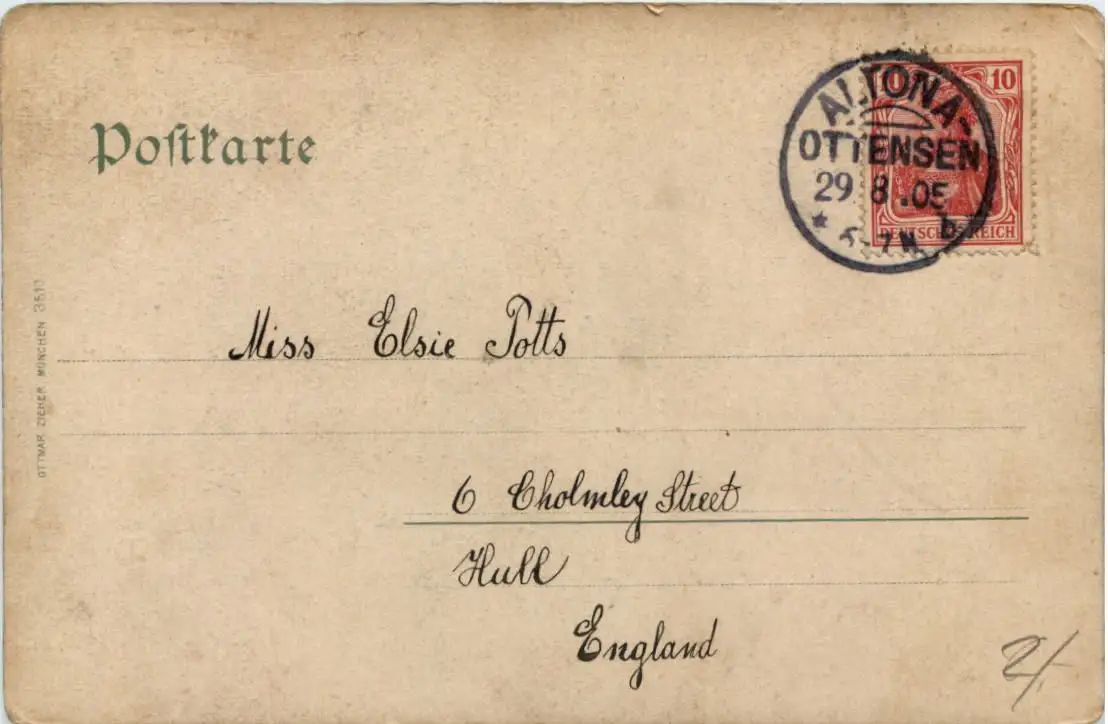 Postkarte
10
ALTONA-
OTTENSEN
29.8.05
* 6-7N b
DEUTSCHES REICH
OTTMAR ZIEHER MÜNCHEN
Miss Elsie Potts
6 Cholmley Street
Hull
England
2/-